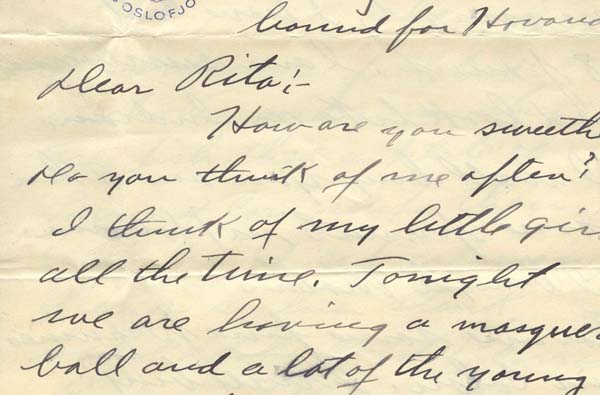 OSLOFJO
bound for Havana
Dear Rita:-
How are you sweeth
Do you think of me often?
I think of my little gir
all the time. Tonight
we are having a masquer
ball and a lot of the young